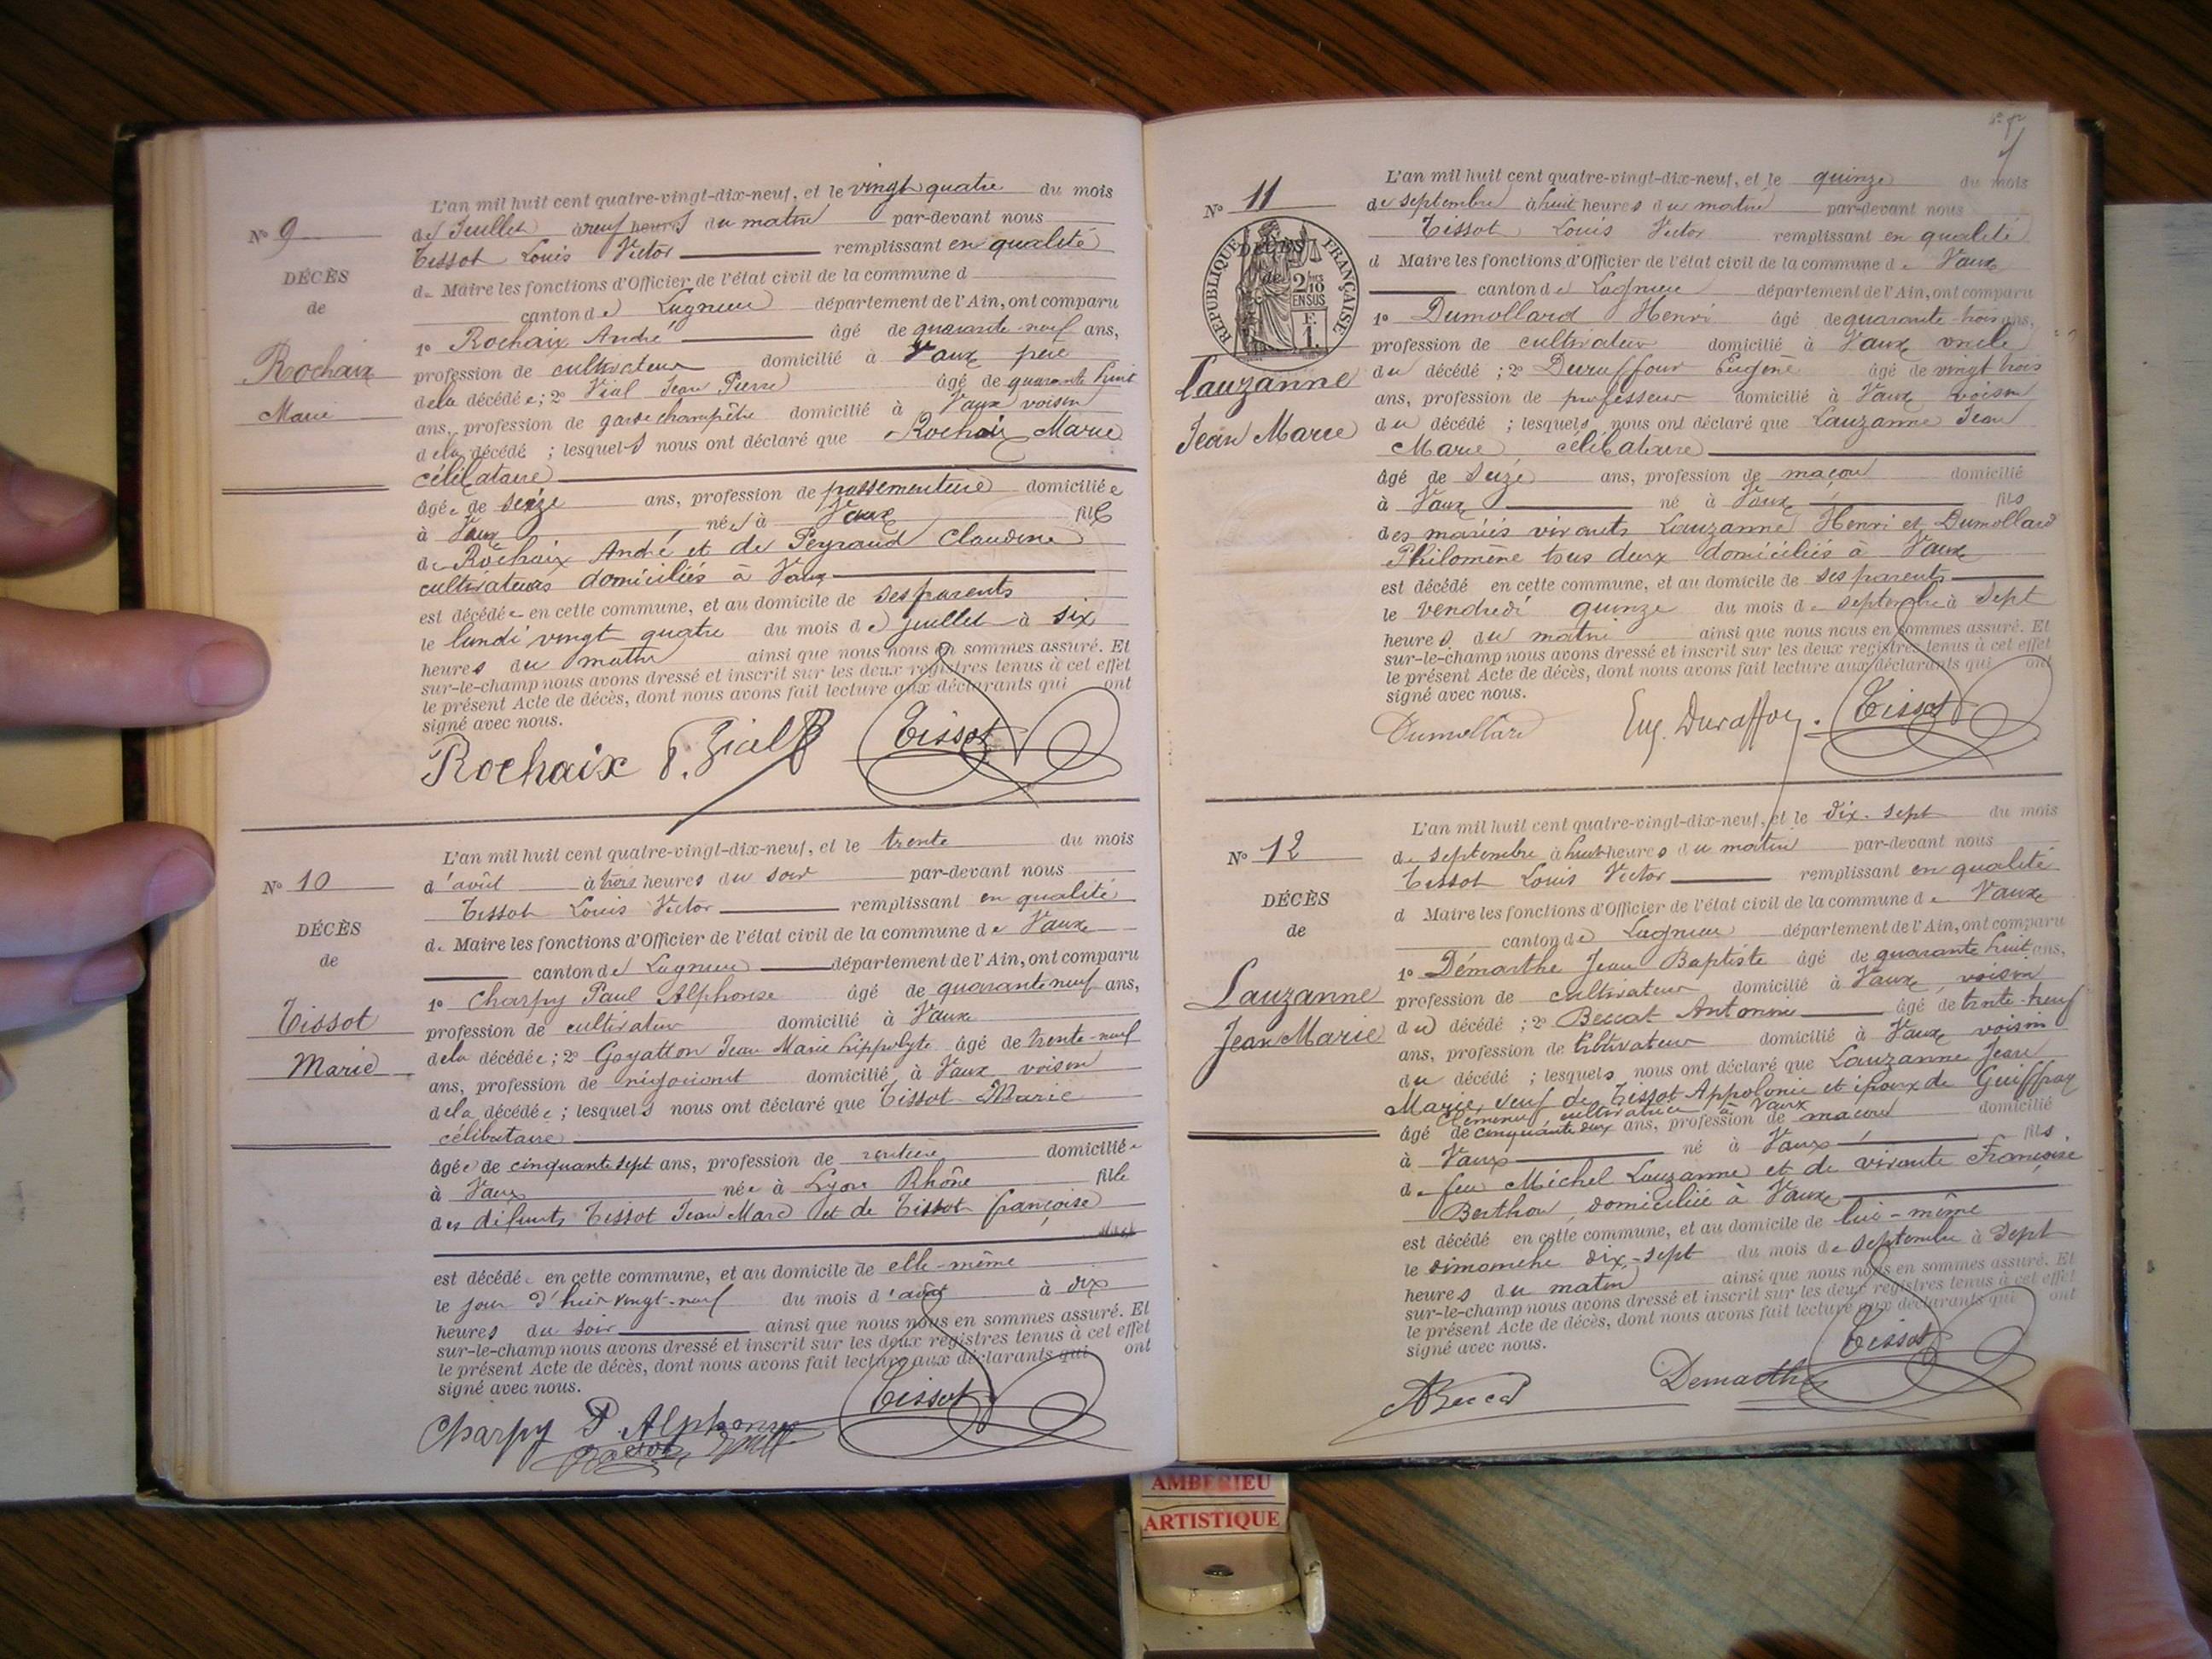 L'an mil huit cent quatre-vingt-dix-neuf, et le vingt quatre du mois
N° 9
de Juillet à neuf heures du matin par-devant nous
Tissot Louis Victor remplissant en qualité
DÉCÈS
de Maire les fonctions d'Officier de l'état civil de la commune d
de
canton de Lagnieu département de l'Ain, ont comparu
1° Rochaix André âgé de quarante-neuf ans,
Rochaix
profession de cultivateur domicilié à Vaux père
Marie
de la décédée; 2° Vial Jean Pierre âgé de quarante huit
ans, profession de garde champêtre domicilié à Vaux voisin
de la décédé ; lesquels nous ont déclaré que Rochaix Marie
célibataire
âgée de seize ans, profession de passementière domiciliée
à Vaux née à Vaux fille
de Rochaix André et de Peyraud Claudine
cultivateurs domiciliés à Vaux
est décédée en cette commune, et au domicile de ses parents
le lundi vingt quatre du mois de juillet à six
heures du matin ainsi que nous nous en sommes assuré. Et
sur-le-champ nous avons dressé et inscrit sur les deux registres tenus à cet effet
le présent Acte de décès, dont nous avons fait lecture aux déclarants qui ont
signé avec nous.
Rochaix P. Vial Tissot
L'an mil huit cent quatre-vingt-dix-neuf, et le trente du mois
N° 10
d'août à trois heures du soir par-devant nous
Tissot Louis Victor remplissant en qualité
DÉCÈS
de Maire les fonctions d'Officier de l'état civil de la commune de Vaux
de
canton de Lagnieu département de l'Ain, ont comparu
1° Charpy Paul Alphonse âgé de quarante neuf ans,
Tissot
profession de cultivateur domicilié à Vaux
Marie
de la décédée; 2° Goyatton Jean Marie hippolyte âgé de trente-neuf
ans, profession de négociant domicilié à Vaux voisin
de la décédée ; lesquels nous ont déclaré que Tissot Marie
célibataire
âgée de cinquante sept ans, profession de rentière domiciliée
à Vaux née à Lyon Rhône fille
des défunts Tissot Jean Marc et de Tissot françoise
est décédée en cette commune, et au domicile de elle-même
le jour d'hier vingt-neuf du mois d'août à dix
heures du soir ainsi que nous nous en sommes assuré. Et
sur-le-champ nous avons dressé et inscrit sur les deux registres tenus à cet effet
le présent Acte de décès, dont nous avons fait lecture aux déclarants qui ont
signé avec nous.
Charpy P Alphonse Tissot
L'an mil huit cent quatre-vingt-dix-neuf, et le quinze du mois
N° 11
de septembre à huit heures du matin par-devant nous
Tissot Louis Victor remplissant en qualité
RÉPUBLIQUE FRANÇAISE
DÉCÈS
de
2/10 EN SUS
F. 1.
d Maire les fonctions d'Officier de l'état civil de la commune de Vaux
canton de Lagnieu département de l'Ain, ont comparu
1° Dumollard Henri âgé de quarante-trois ans,
profession de cultivateur domicilié à Vaux oncle
Lauzanne
du décédé ; 2° Duraffour Eugène âgé de vingt trois
ans, profession de professeur domicilié à Vaux voisin
Jean Marie
du décédé ; lesquels nous ont déclaré que Lauzanne Jean
Marie, célibataire
âgé de seize ans, profession de maçon domicilié
à Vaux né à Vaux fils
des mariés vivants Lauzanne Henri et Dumollard
Philomène tous deux domiciliés à Vaux
est décédé en cette commune, et au domicile de ses parents
le vendredi quinze du mois de septembre à sept
heures du matin ainsi que nous nous en sommes assuré. Et
sur-le-champ nous avons dressé et inscrit sur les deux registres tenus à cet effet
le présent Acte de décès, dont nous avons fait lecture aux déclarants qui ont
signé avec nous.
Dumollard Eug. Duraffour Tissot
L'an mil huit cent quatre-vingt-dix-neuf, et le dix-sept du mois
N° 12
de septembre à huit heures du matin par-devant nous
Tissot Louis Victor remplissant en qualité
DÉCÈS
d Maire les fonctions d'Officier de l'état civil de la commune de Vaux
de
canton de Lagnieu département de l'Ain, ont comparu
1° Démarthe Jean Baptiste âgé de quarante huit ans,
Lauzanne
profession de cultivateur domicilié à Vaux, voisin
Jean Marie
du décédé ; 2° Beccat Antonin âgé de trente-neuf
ans, profession de cultivateur domicilié à Vaux voisin
du décédé ; lesquels nous ont déclaré que Lauzanne Jean
Marie, veuf de Tissot Appolonie et époux de Guiffray
cultivatrice à Vaux
âgé de cinquante deux ans, profession de maçon domicilié
à Vaux né à Vaux fils
de feu Michel Lauzanne et de vivante Françoise
Berthou, domiciliée à Vaux
est décédé en cette commune, et au domicile de lui-même
le dimanche dix-sept du mois de septembre à sept
heures du matin ainsi que nous nous en sommes assuré. Et
sur-le-champ nous avons dressé et inscrit sur les deux registres tenus à cet effet
le présent Acte de décès, dont nous avons fait lecture aux déclarants qui ont
signé avec nous.
ABeccat Demarthe Tissot
AMBERIEU
ARTISTIQUE